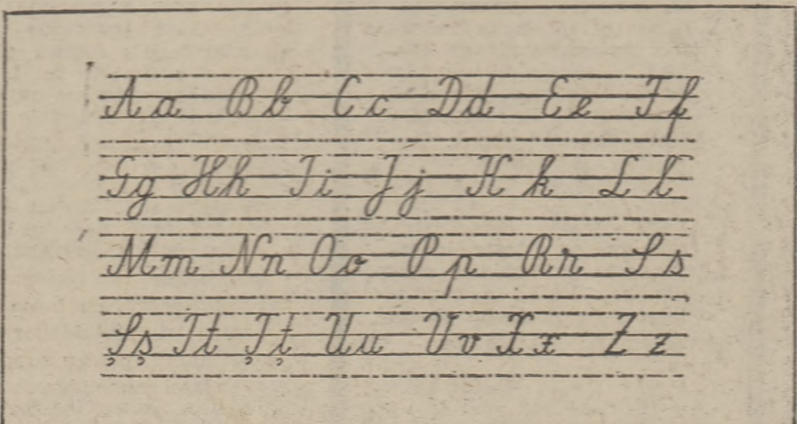 Aa Bb Cc Dd Ee Ff
Gg Hh Ii Jj K k L l
Mm Nn Oo Pp Rr Ss
Șș Tt Țț Uu Vv Xx Zz